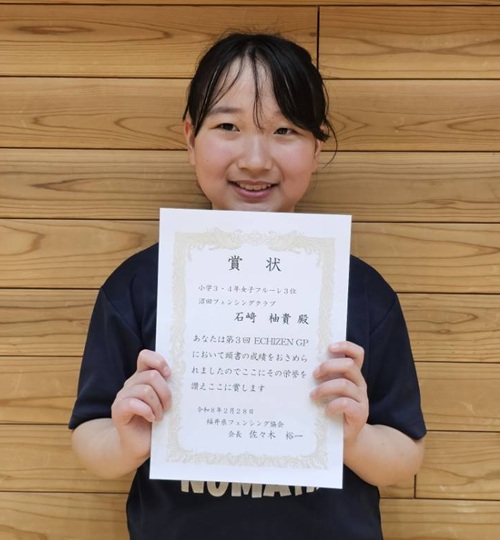 賞状
小学3・4年女子フルーレ3位
沼田フェンシングクラブ
石﨑 柚貴 殿
あなたは第3回 ECHIZEN GP
において頭書の成績をおさめら
れましたのでここにその栄誉を
讃えここに賞します
令和8年2月28日
福井県フェンシング協会
会長 佐々木 裕一
NUMATA